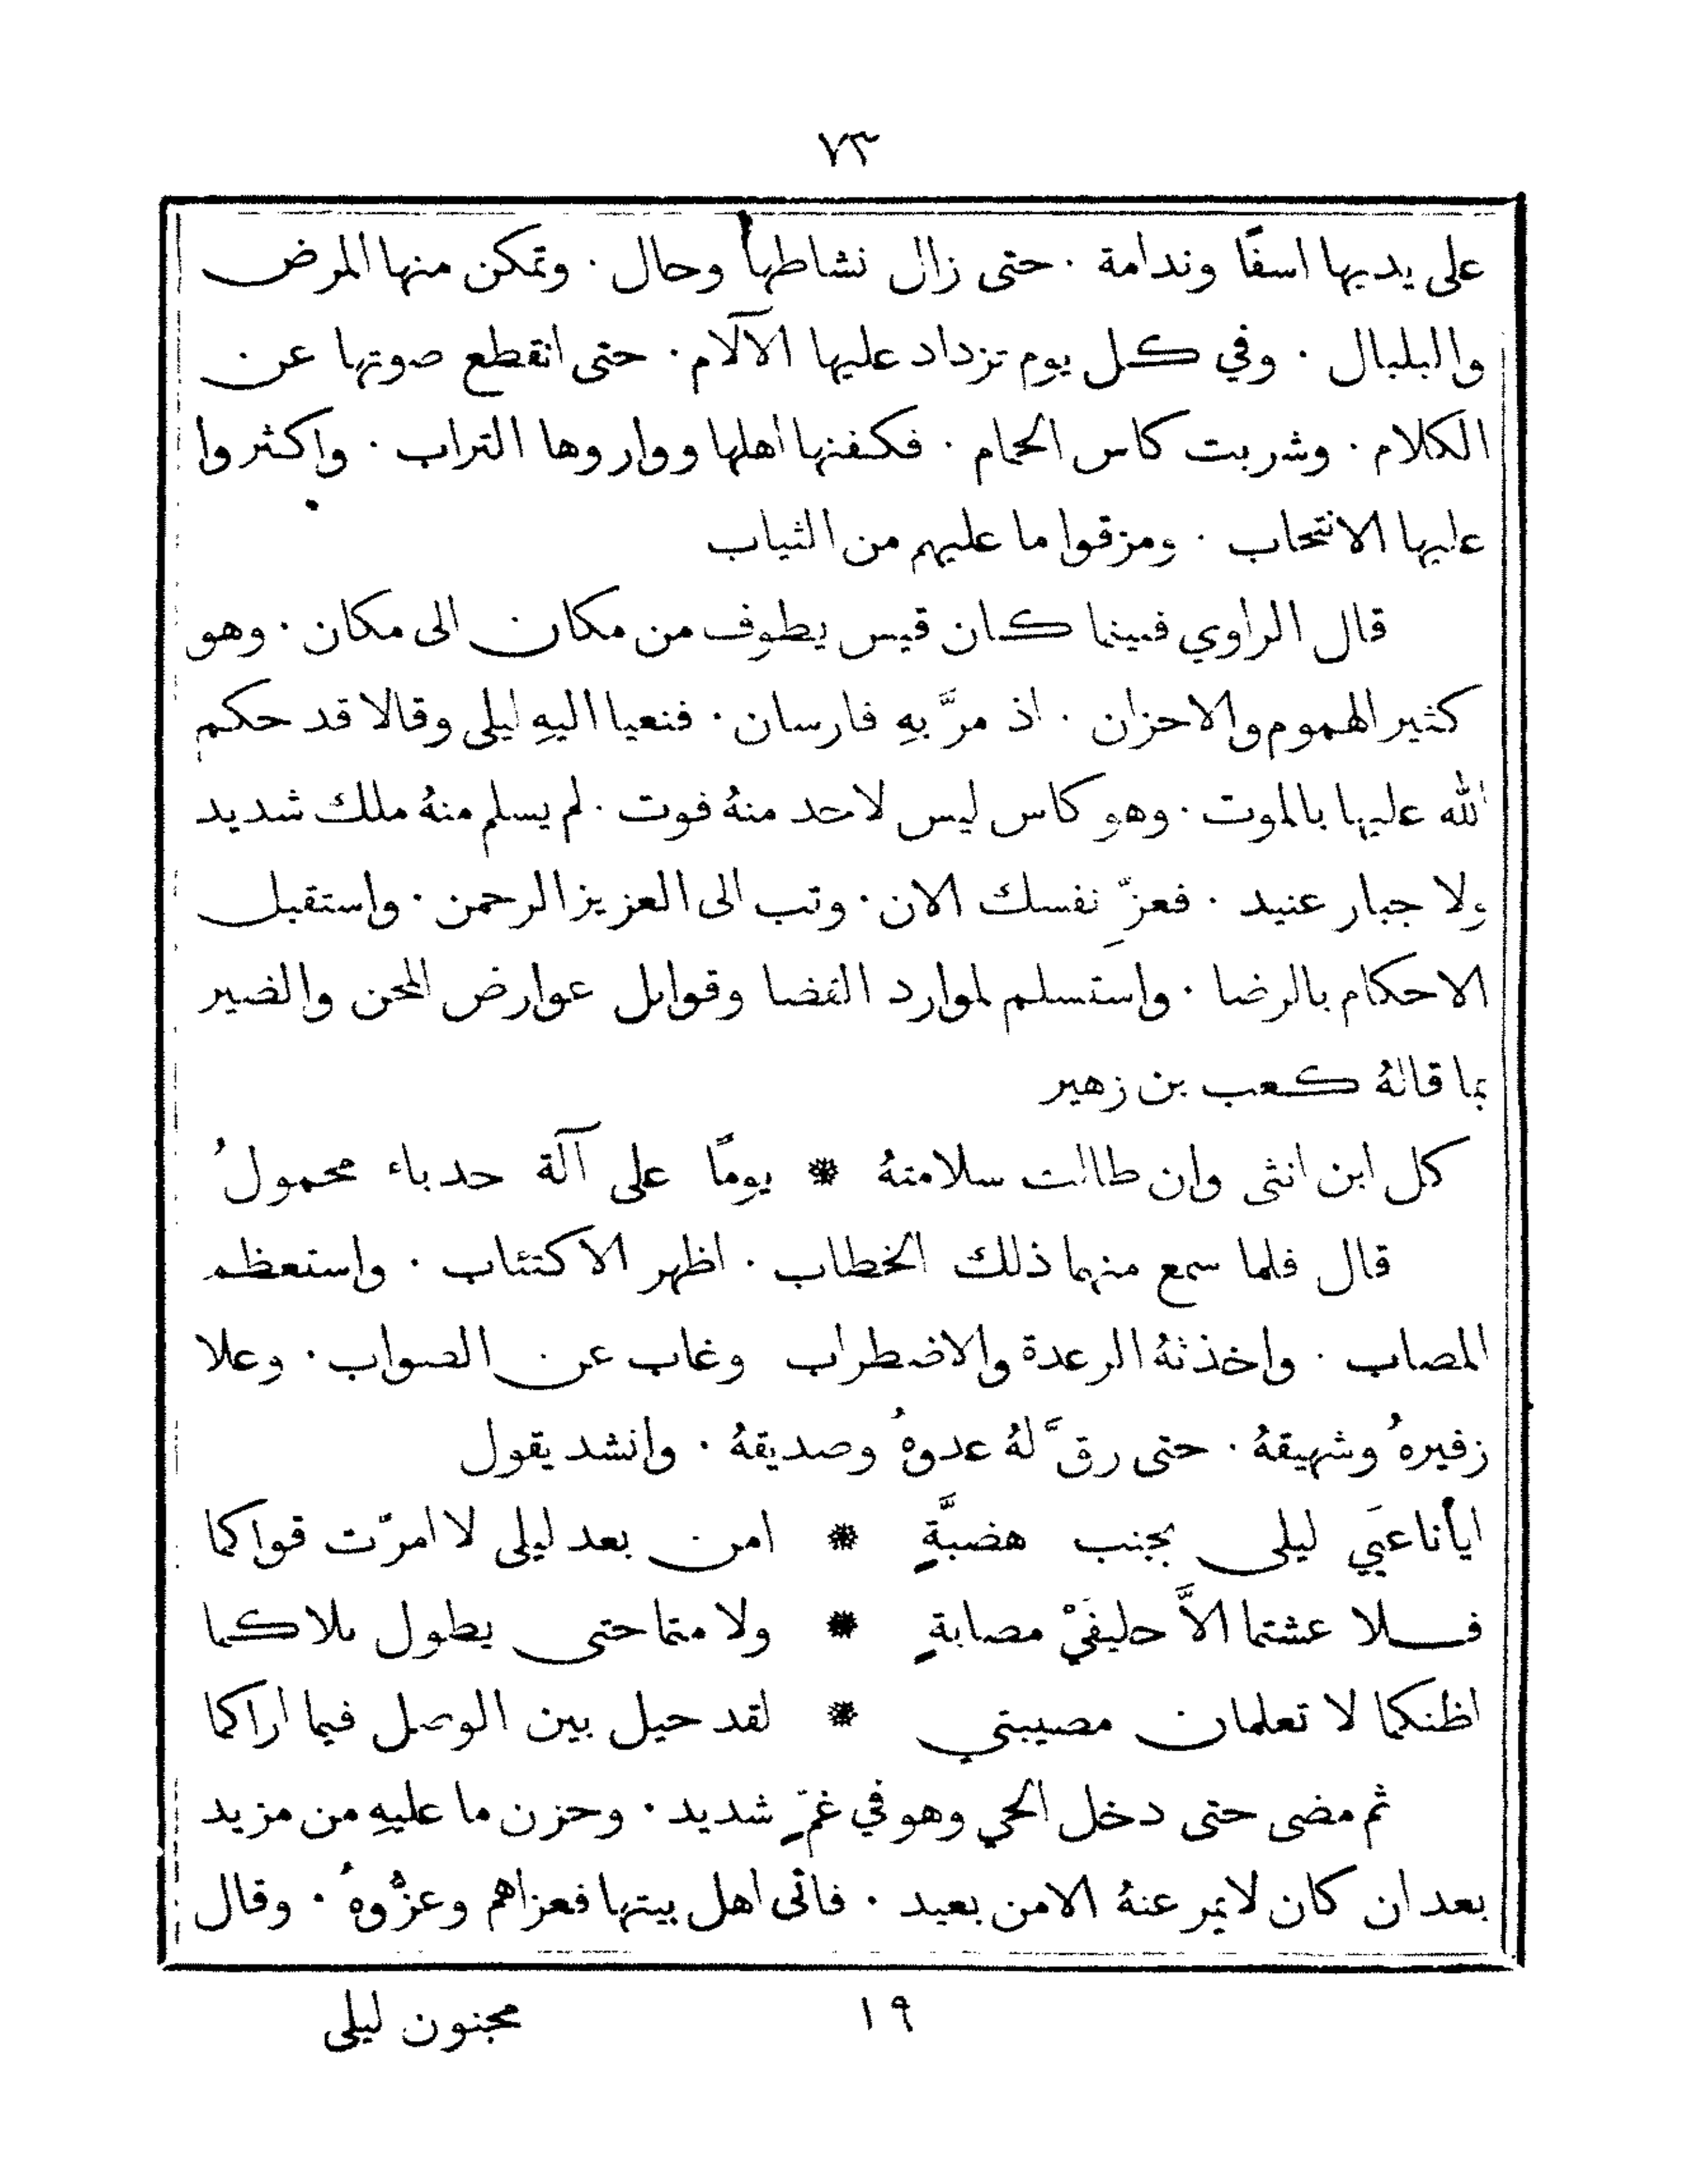 ٧٣
على يديها اسفًا وندامة ٠ حتى زال نشاطها وحال ٠ وتمكن منها المرض
والبلبال ٠ وفي كل يوم تزداد عليها الآلام ٠ حتى انقطع صوتها عن
الكلام ٠ وشربت كاس الحمام ٠ فكفنها اهلها وواروها التراب ٠ واكثروا
عليها الانتحاب ٠ ومزقوا ما عليهم من الثياب
قال الراوي فبينما كان قيس يطوف من مكان الى مكان ٠ وهو
كثير الهموم والاحزان ٠ اذ مرَّ بهِ فارسان ٠ فنعيا اليهِ ليلى وقالا قد حكم
الله عليها بالموت ٠ وهو كاس ليس لاحد منهُ فوت ٠ لم يسلم منهُ ملك شديد
ولا جبار عنيد ٠ فعزِّ نفسك الان ٠ وتب الى العزيز الرحمن ٠ واستقبل
الاحكام بالرضا ٠ واستسلم لموارد القضا وقوابل عوارض المحن والضير
بما قالهُ كعب بن زهير
كل ابن انثى وان طالت سلامتهُ * يومًا على آلة حدباء محمولُ
قال فلما سمع منهما ذلك الخطاب ٠ اظهر الاكتئاب ٠ واستعظم
المصاب ٠ واخذتهُ الرعدة والاضطراب وغاب عن الصواب ٠ وعلا
زفيرهُ وشهيقهُ ٠ حتى رقَّ لهُ عدوهُ وصديقهُ ٠ وانشد يقول
ايأناعيَي ليلى بجنب هضبَّةٍ * امن بعد ليلى لا امرّت قواكما
فلا عشتما الاَّ حليفَيْ مصابةٍ * ولا متما حتى يطول بلاكما
اظنكما لا تعلمان مصيبتي * لقد حيل بين الوصل فيما اراكما
ثم مضى حتى دخل الحي وهو في غمٍّ شديد ٠ وحزن ما عليهِ من مزيد
بعد ان كان لا يمر عنهُ الا من بعيد ٠ فاتى اهل بيتها فعزاهم وعزُّوهُ ٠ وقال
١٩ مجنون ليلى